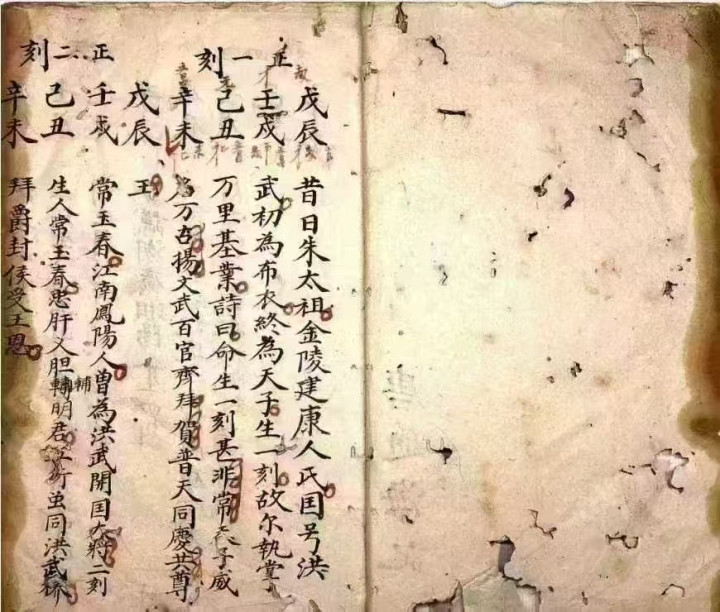 正一刻
戊辰 昔日朱太祖金陵建康人氏囯号洪
壬戌 武初為布衣終為天子生一刻故尔執掌
己丑 万里基業詩曰命生一刻甚非常天子威
辛未 名万古揚文武百官齊拜賀普天同慶共尊
戊辰 王
正二刻
壬戌 常玉春江南鳳陽人曾為洪武開囯大將二刻
己丑 生人常玉春忠肝义胆輔明君 同洪武
辛未 拜爵封侯受王恩